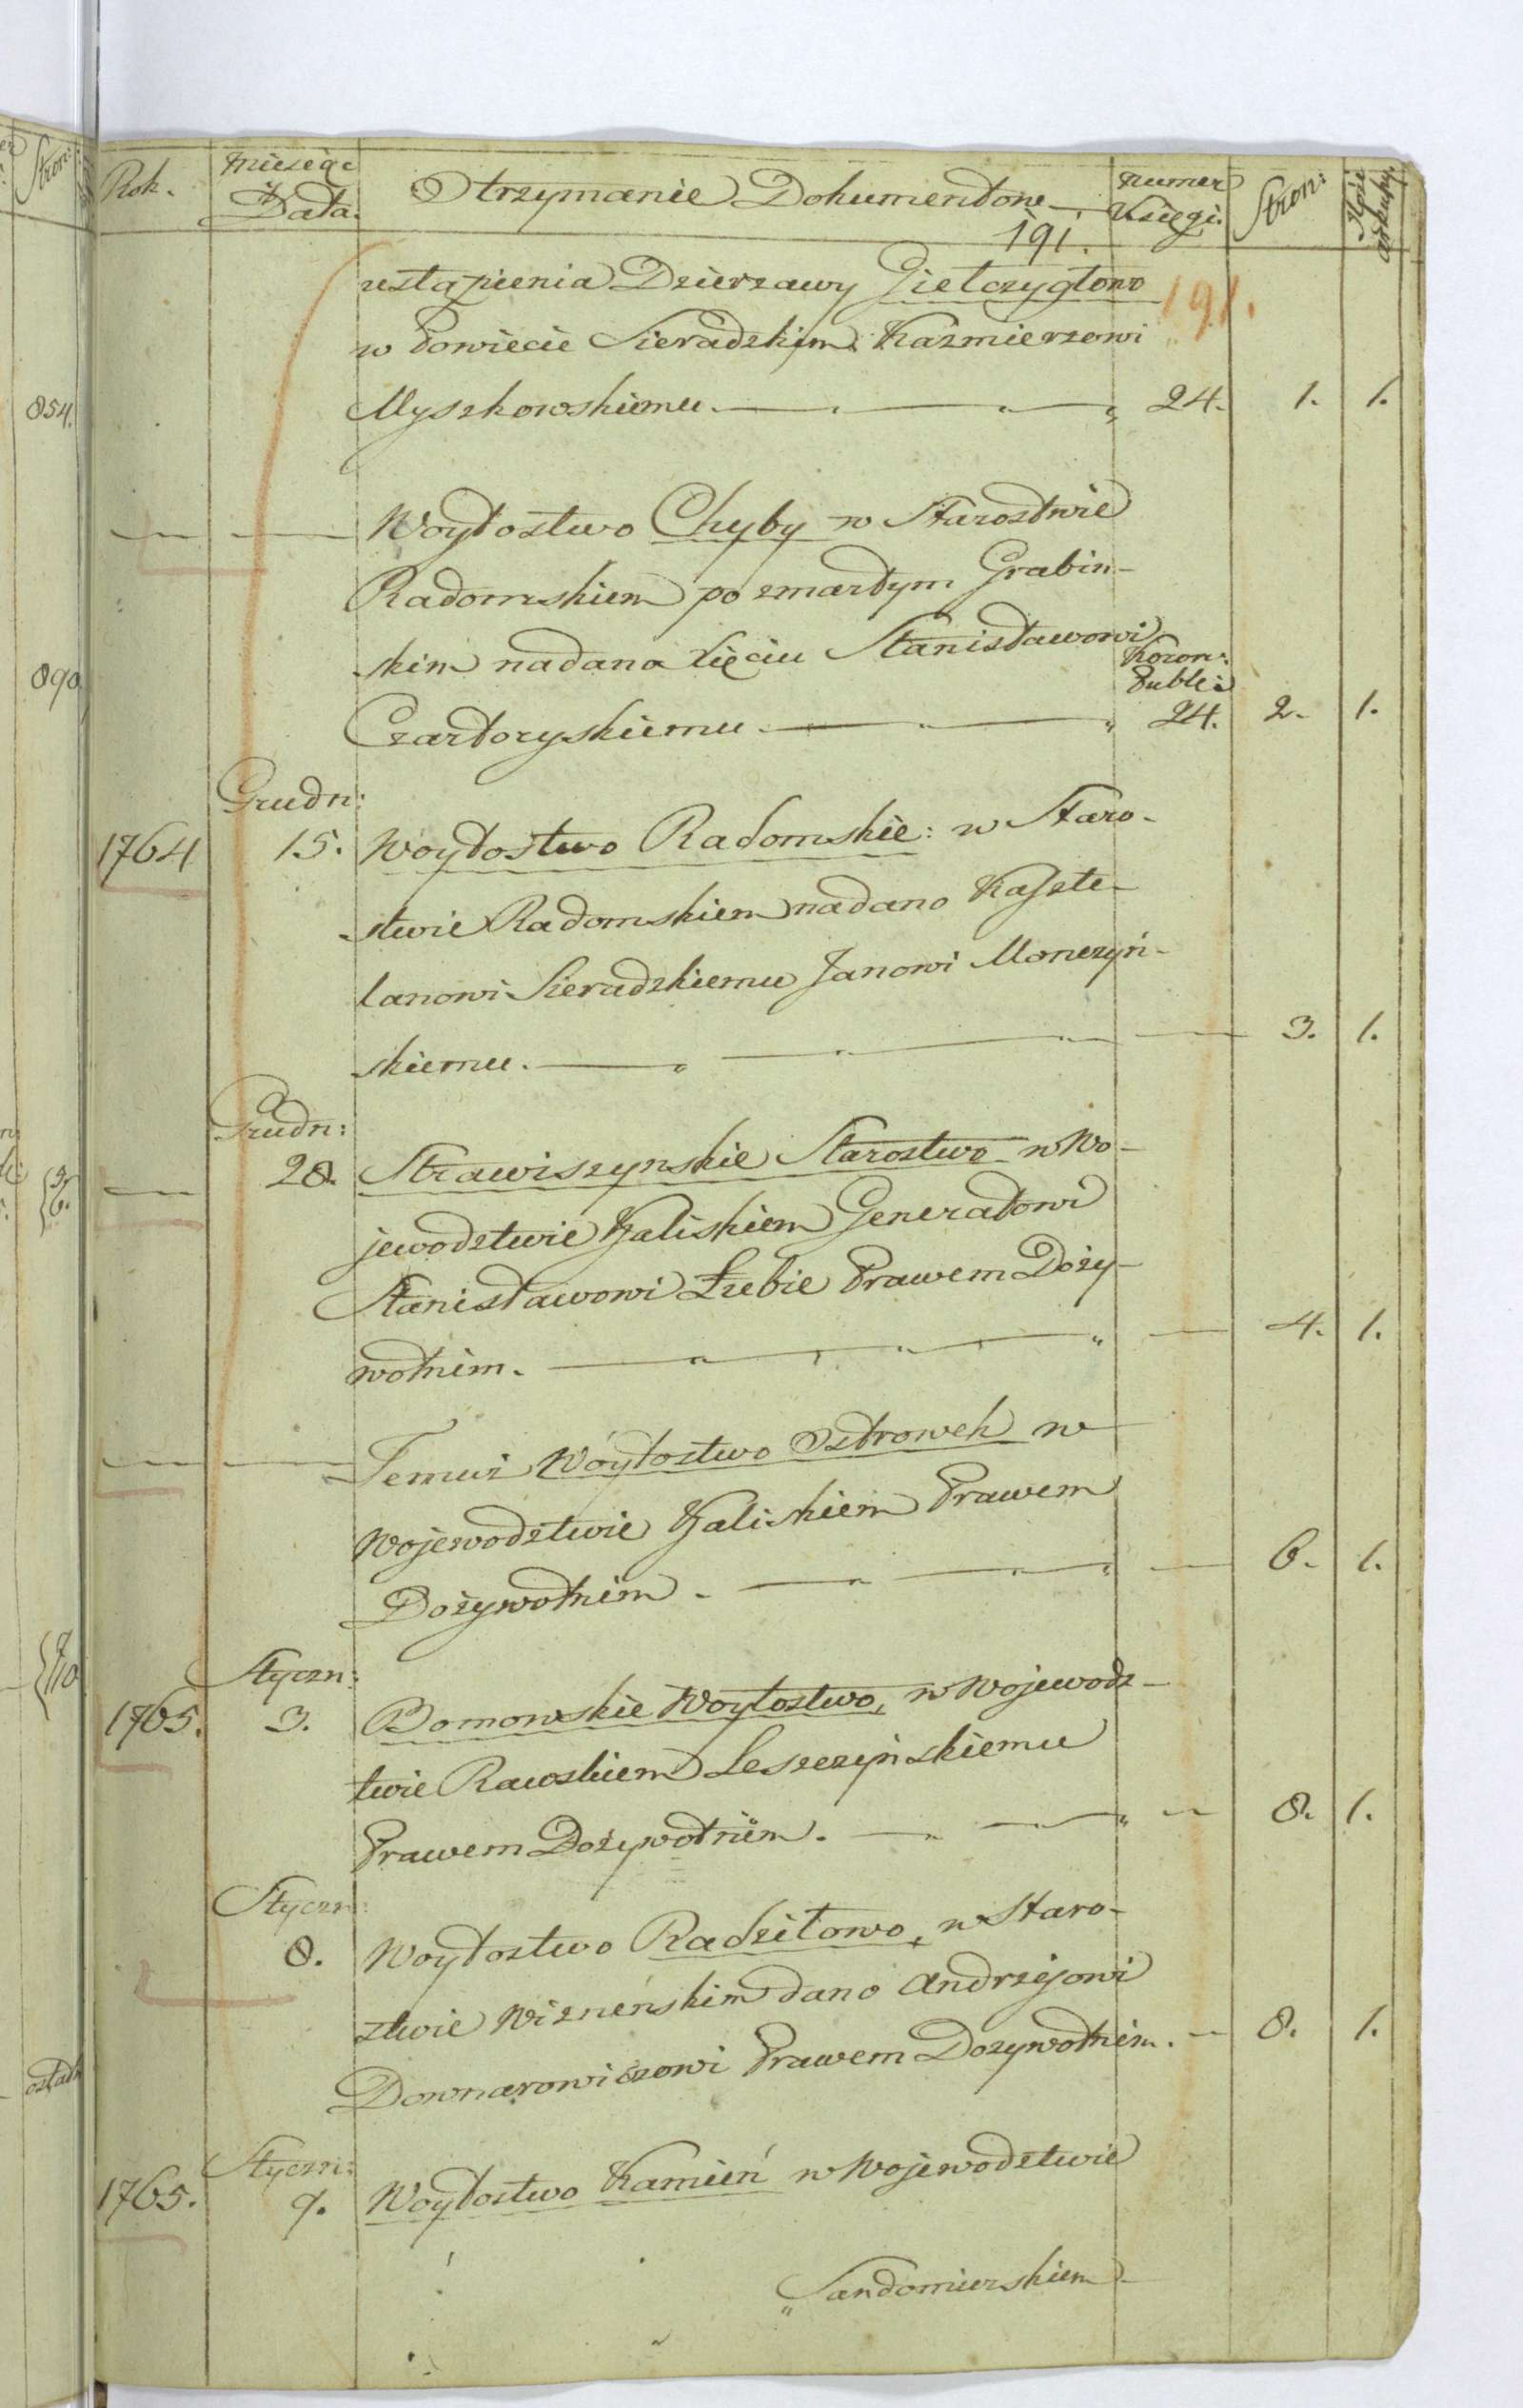 Rok.
miesiąc
Data.
Otrzymanie Dokumentów
numer
Księgi.
Stron:
Ilość
arkuszy.
191.
ustąpienia Dzierzawy Gietczygłow
191.
w Powiecie Sieradzkim Kaźmierzowi
Myszkowskiemu. 24. 1. 1.
Woytostwo Chyby w Starostwie
Radomskiem po zmarłym Grabin-
skim nadana Xięciu Stanisławowi
Koron:
Publ:
Czartoryskiemu 24. 2. 1.
Grudn:
1764 15. Woytostwo Radomskie: w Staro-
stwie Radomskiem nadano Kaszte-
lanowi Sieradzkiemu Janowi Monczyń-
skiemu. 3. 1.
Grudn:
28. Strawiszynskie Starostwo w Wo-
jewodztwie Kaliskiem Generałowi
Stanisławowi Łubie Prawem Doży-
wotnim. 4. 1.
Temuż Wóytostwo Ostrowek w
Wojewodztwie Kaliskiem Prawem
Dożywotnim. 6. 1.
Styczn:
1765. 3. Bomowskie Woytostwo, w Wojewodz-
twie Rawskiem Leszczyńskiemu
Prawem Dożywotnim. 8. 1.
Styczn:
8. Woytostwo Radziłowo, w Staro-
stwie Wizneńskim dano Andrzejowi
Downarowiczowi Prawem Dozywotnim. 8. 1.
Styczn:
1765. 9. Woytostwo Kamień w Wojewodztwie
Sandomierskiem
854.
890
ostatk